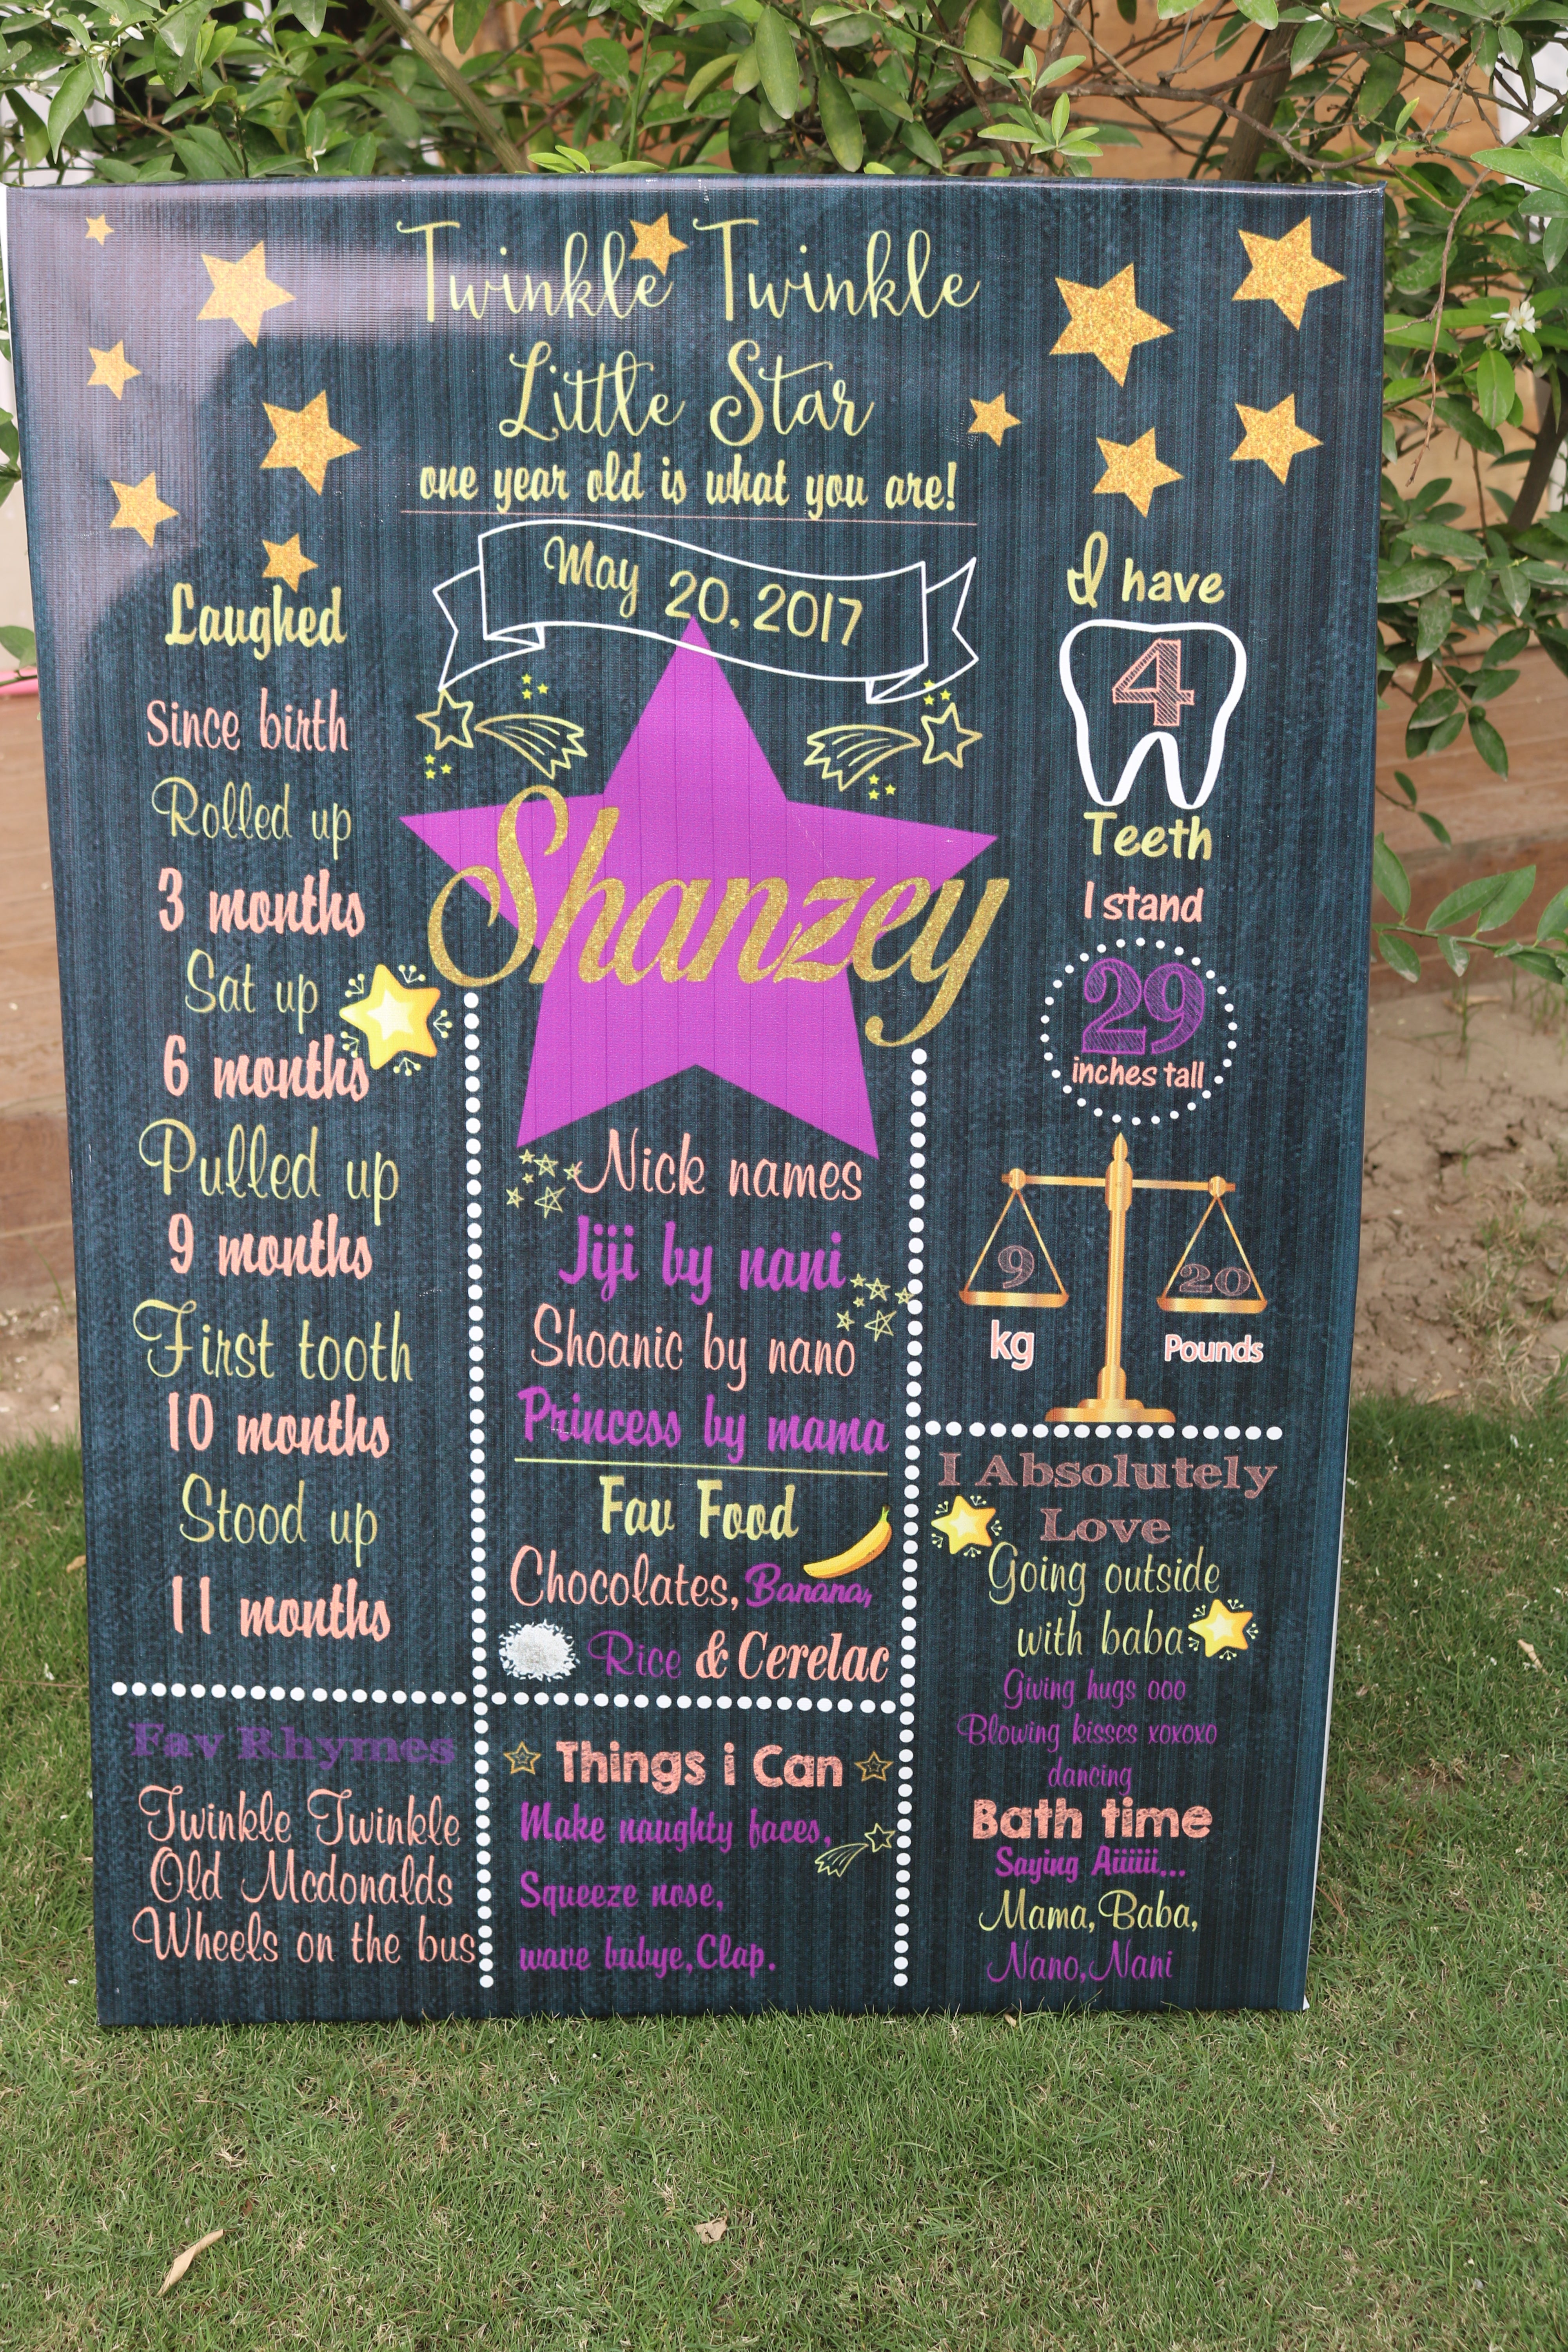 Twinkle Twinkle
Little Star
one year old is what you are!
May 20, 2017
Shanzey
Laughed
Since birth
Rolled up
3 months
Sat up
6 months
Pulled up
9 months
First tooth
10 months
Stood up
11 months
Fav Rhymes
Twinkle Twinkle
Old Mcdonalds
Wheels on the bus
Nick names
Jiji by nani
Shoanic by nano
Princess by mama
Fav Food
Chocolates, Banana,
Rice & Cerelac
Things i Can
Make naughty faces,
Squeeze nose,
wave babye, Clap.
I have
4
Teeth
I stand
29
inches tall
9 20
kg Pounds
I Absolutely
Love
Going outside
with baba
Giving hugs ooo
Blowing kisses xoxoxo
dancing
Bath time
Saying Aiiiiii...
Mama, Baba,
Nano, Nani